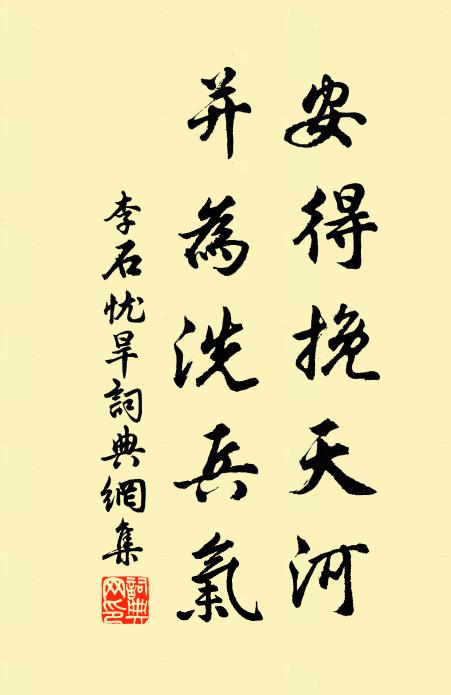 安得挽天河
并為洗兵氣
李石忧旱詞典網集
詞典网印